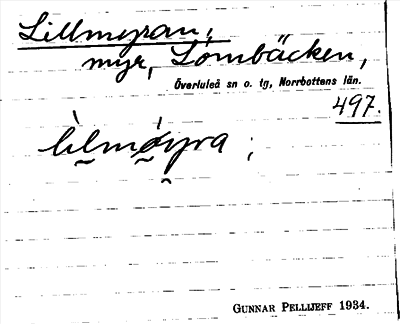 Lillmyran;
myr, Lombäcken,
Överluleå sn o. tg, Norrbottens län.
497.
lìlmǿyra ;
GUNNAR PELLIJEFF 1934.